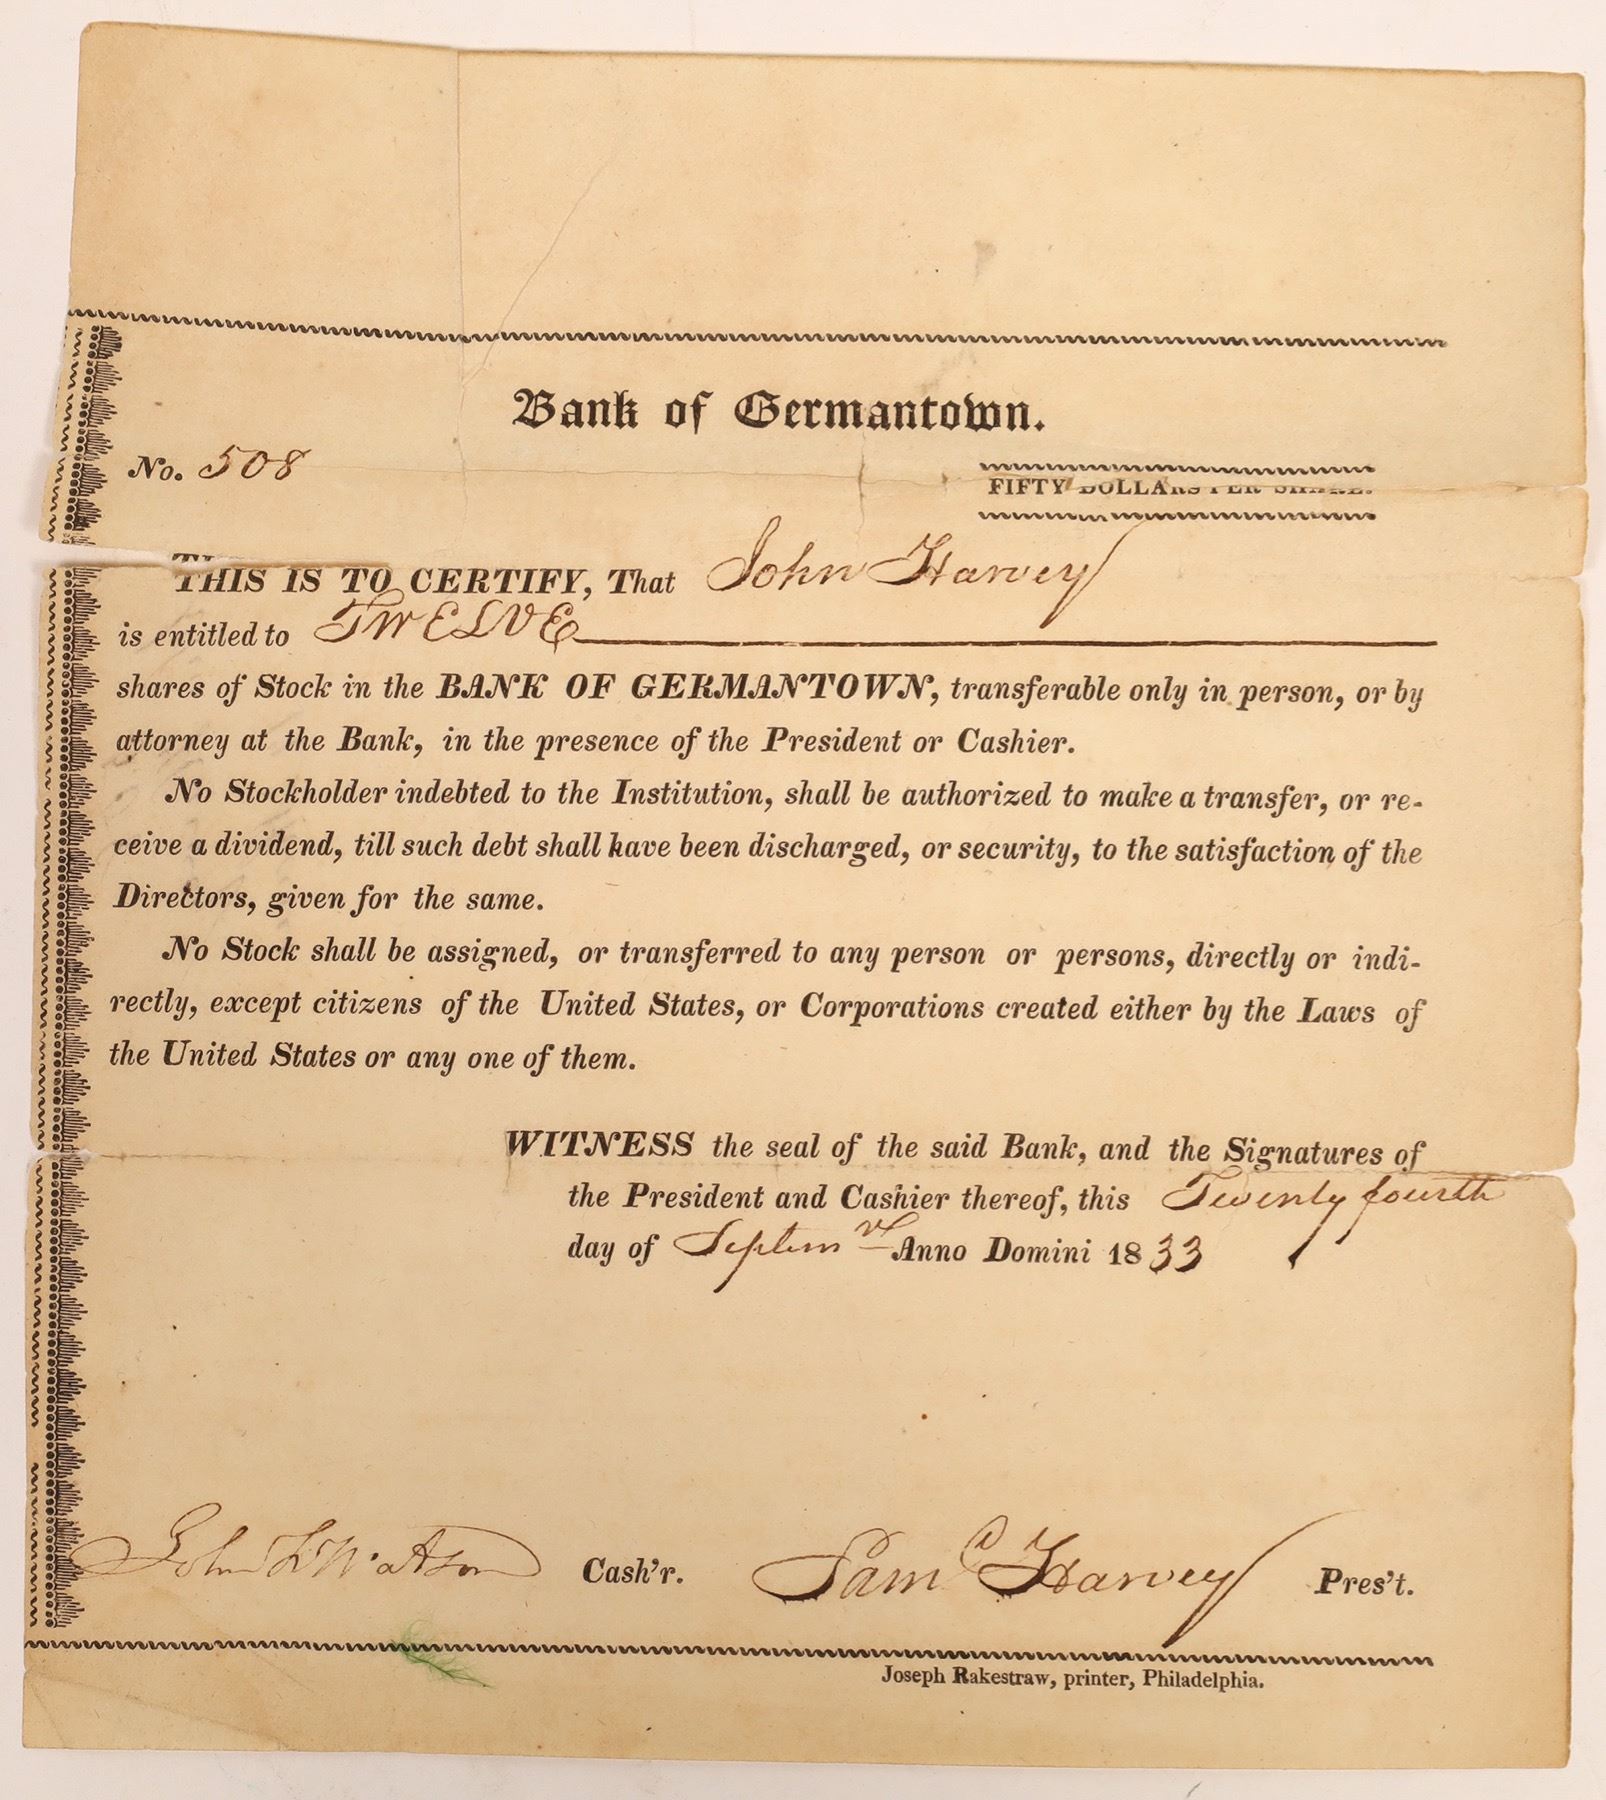 Bank of Germantown.
No. 508
FIFTY DOLLARS PER SHARE.
THIS IS TO CERTIFY, That John Harvey
is entitled to TWELVE
shares of Stock in the BANK OF GERMANTOWN, transferable only in person, or by
attorney at the Bank, in the presence of the President or Cashier.
No Stockholder indebted to the Institution, shall be authorized to make a transfer, or re-
ceive a dividend, till such debt shall have been discharged, or security, to the satisfaction of the
Directors, given for the same.
No Stock shall be assigned, or transferred to any person or persons, directly or indi-
rectly, except citizens of the United States, or Corporations created either by the Laws of
the United States or any one of them.
WITNESS the seal of the said Bank, and the Signatures of
the President and Cashier thereof, this Twenty fourth
day of Septem Anno Domini 1833
John F Watson Cash'r. Saml Harvey Pres't.
Joseph Rakestraw, printer, Philadelphia.